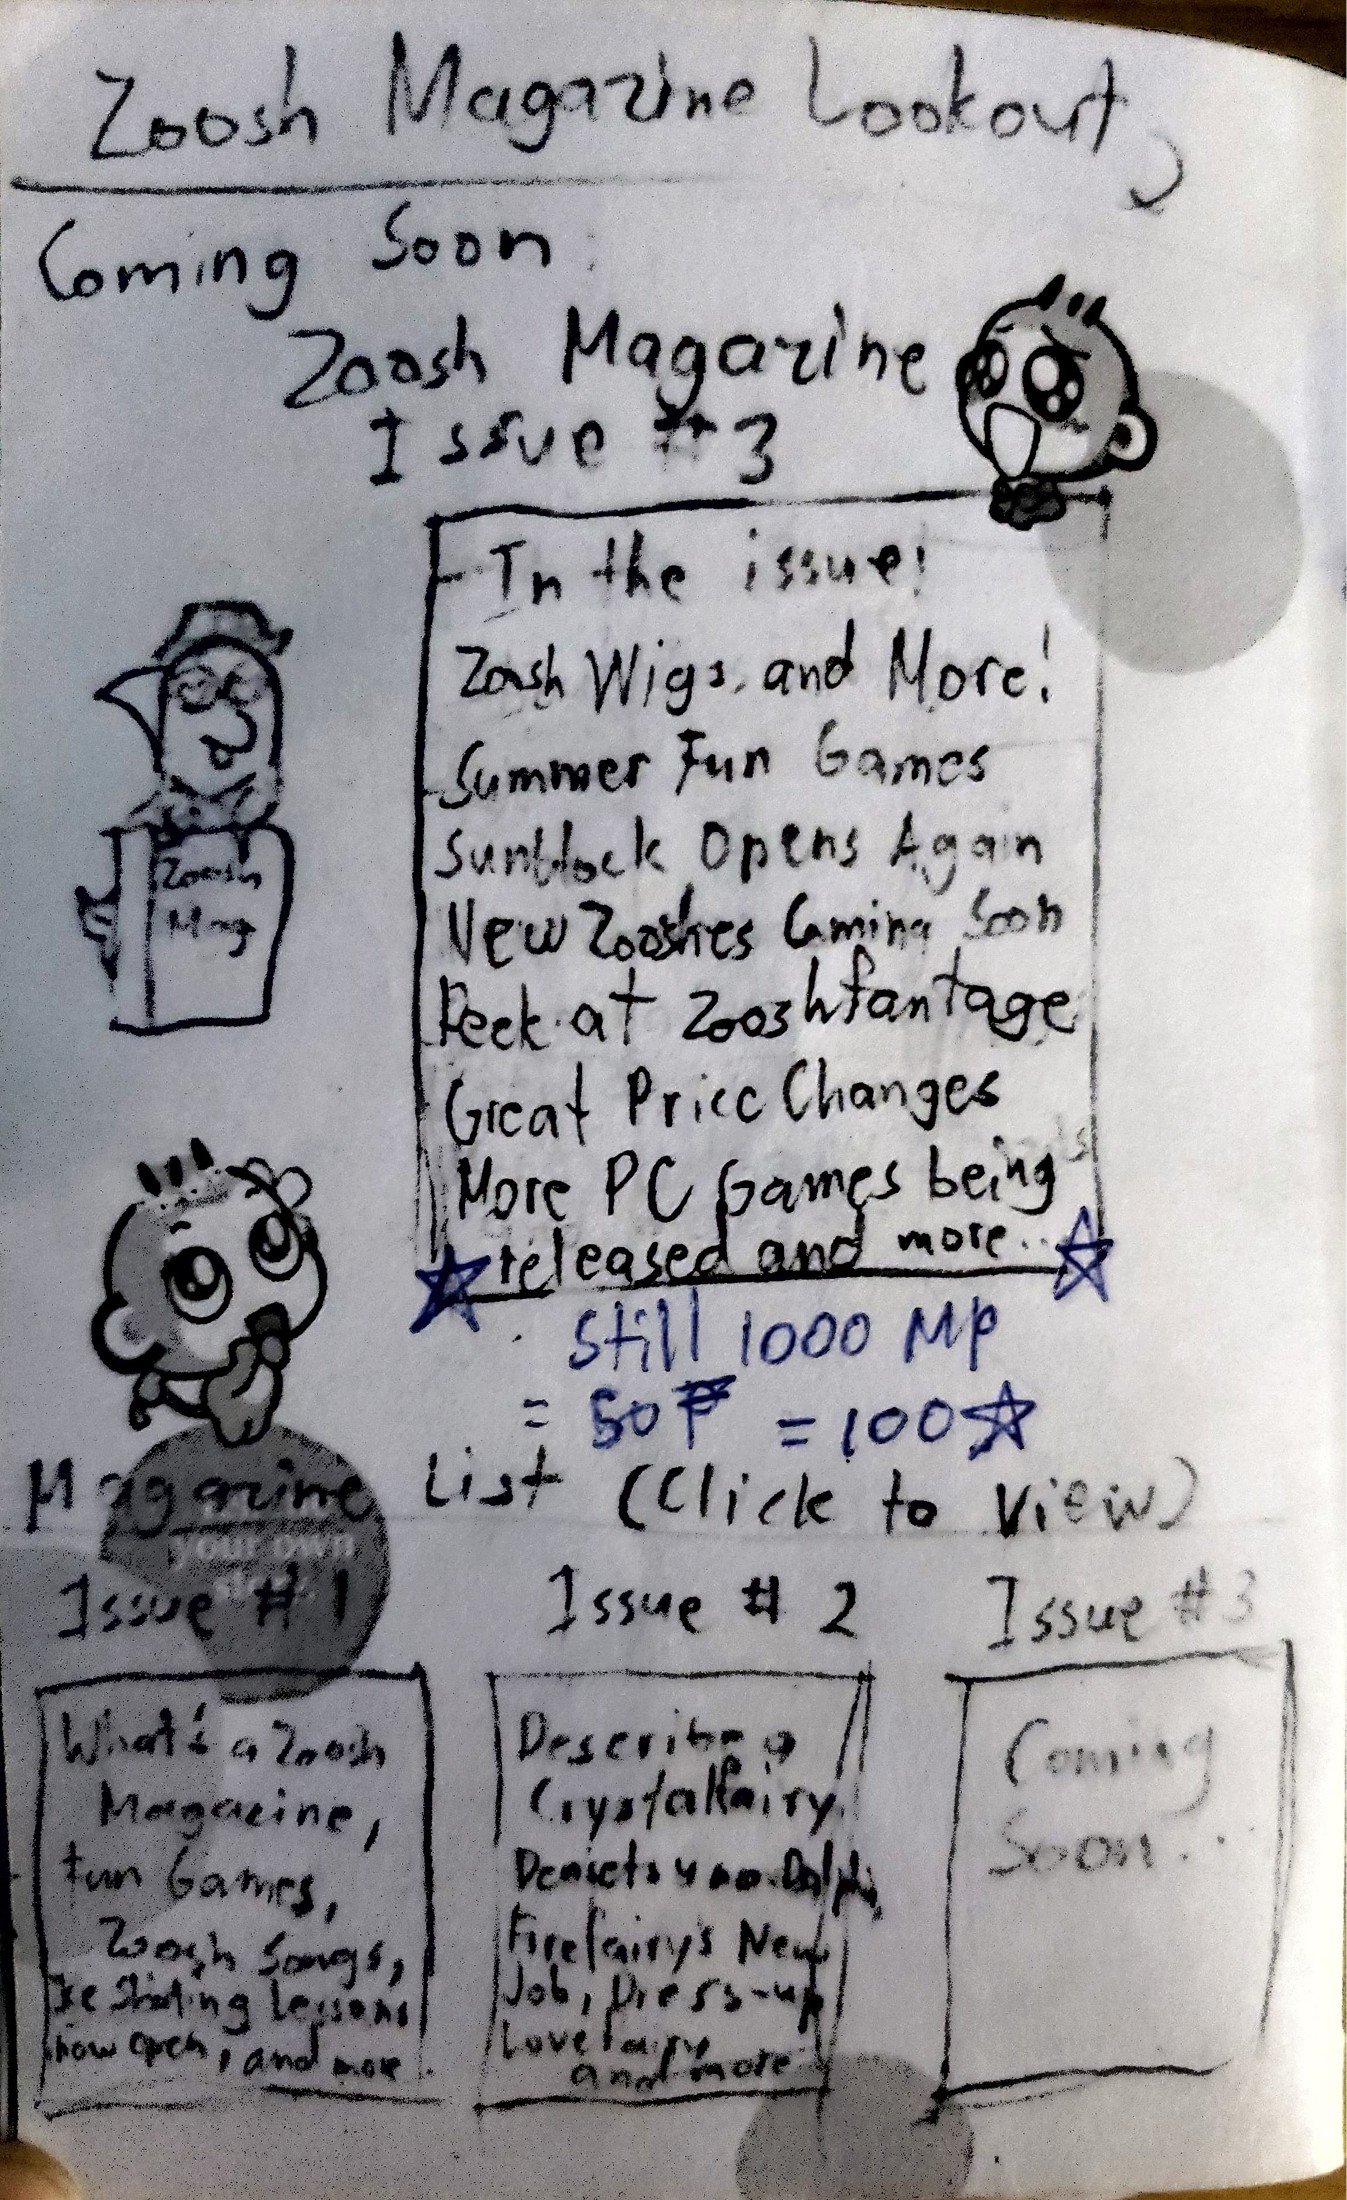 Zoosh Magazine Lookout
Coming Soon:
Zoosh Magazine
Issue #3
In the issue!
Zoosh Wigs, and More!
Summer Fun Games
Sunblock Opens Again
New Zooshies Coming Soon
Peek at Zooshfantage
Great Price Changes
More PC Games being
released and more..
Zoosh
Mag
Still 1000 MP
= 50₱ = 100☆
Magazine List (Click to View)
your own
Issue #1 Issue #2 Issue #3
What's a Zoosh
Magazine,
Fun Games,
Zoosh Songs,
Ice Skating Lessons
now open, and more.
Describe a
Crystalfairy,
Firefairy's New
Job, Dress-up
Lovefairy,
and more
Coming
Soon...